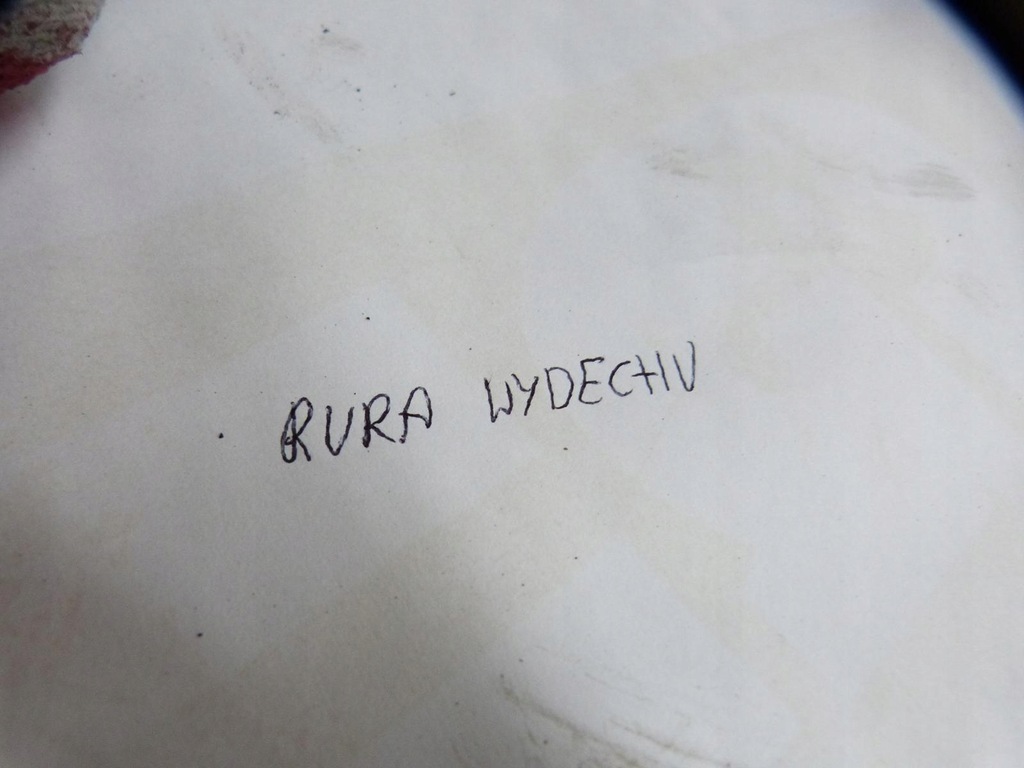 RURA WYDECHU